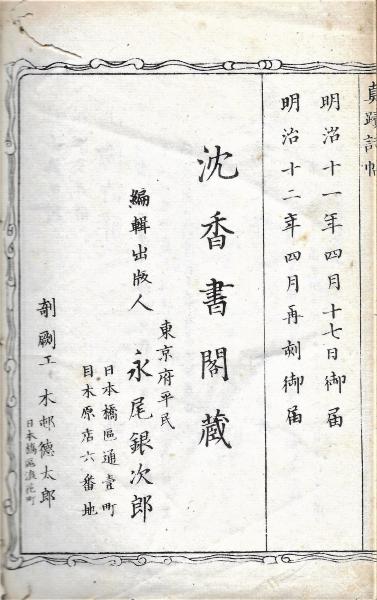 真蹟詩帖
明治十一年四月十七日御届
明治十二年四月再刻御届
沈香書閣蔵
東京府平民
編輯出版人 永尾銀次郎
日本橋區通壹町
目木原店六番地
剞劂工 木邨德太郎
日本橋區浪花町